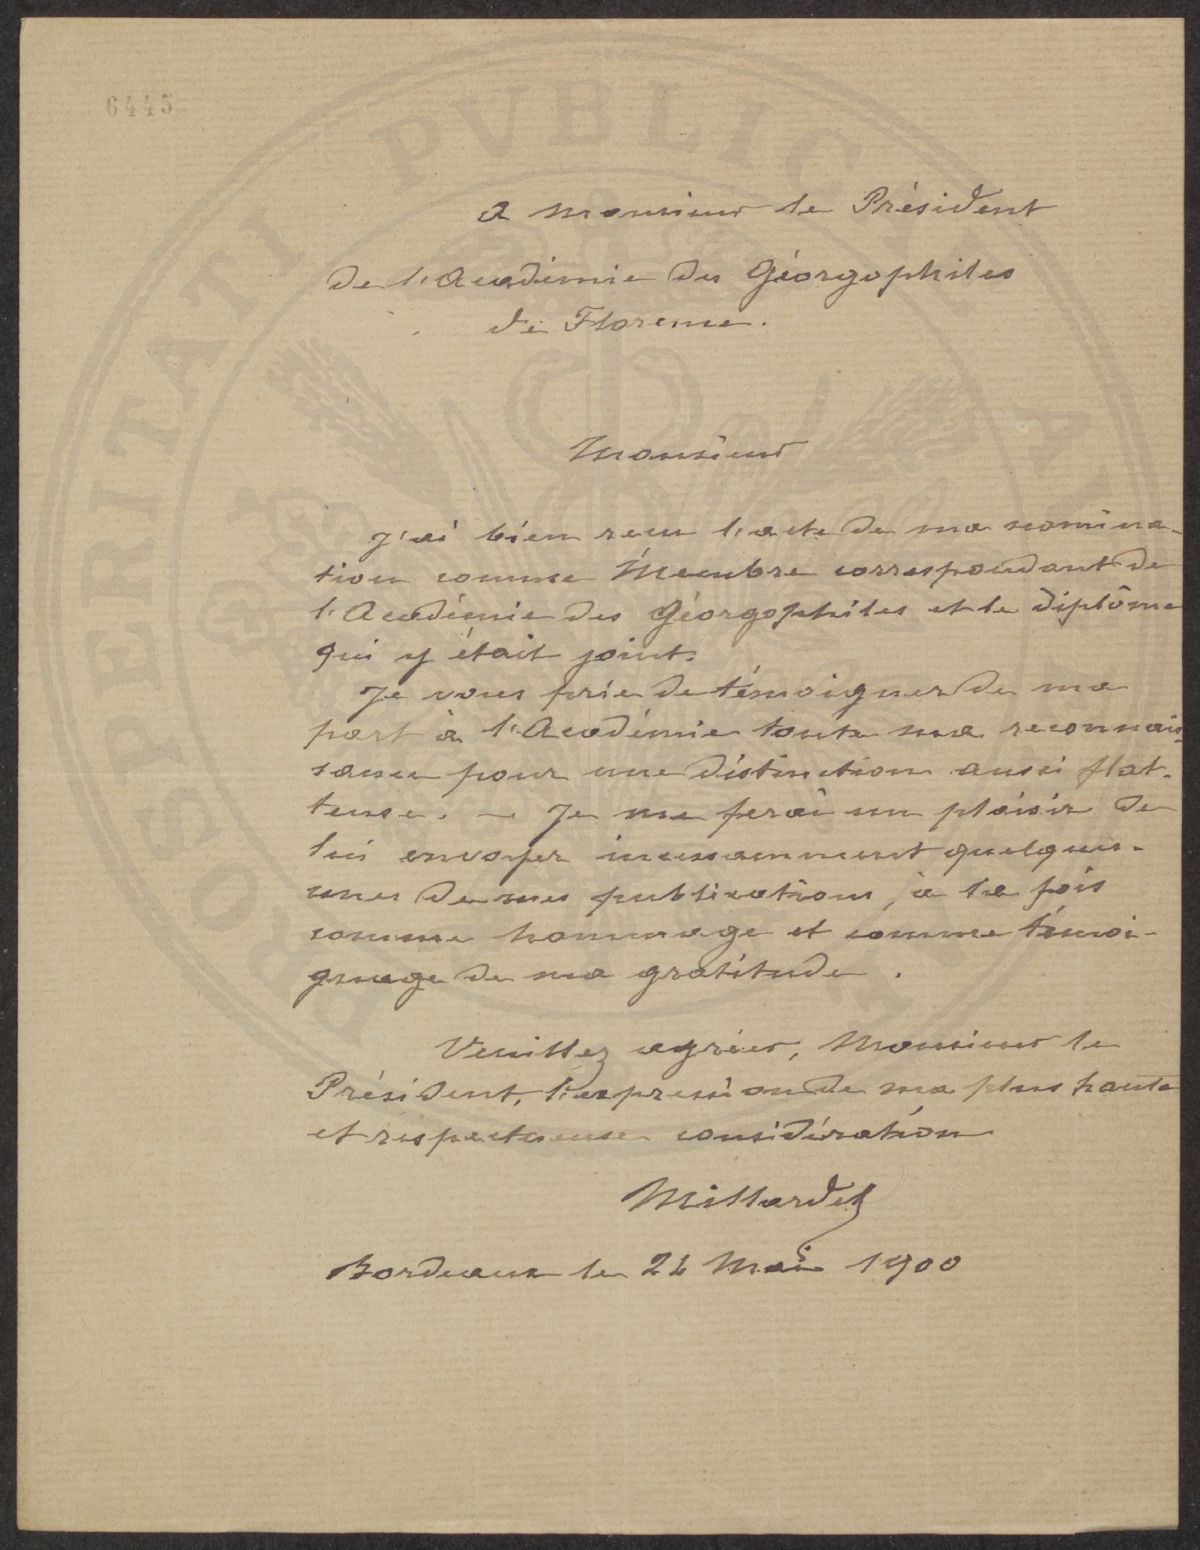 6445
PROSPERITATI PVBLICAE AVGENDAE
A Monsieur le Président
de l'Académie des Géorgophiles
de Florence.
Monsieur
J'ai bien reçu l'acte de ma nomina-
tion comme Membre correspondant de
l'Académie des Géorgophiles et le diplôme
qui y était joint.
Je vous prie de témoigner de ma
part à l'Académie toute ma reconnais-
sance pour une distinction aussi flat-
teuse. — Je me ferai un plaisir de
lui envoyer incessamment quelques-
unes de mes publications, à la fois
comme hommage et comme témoi-
gnage de ma gratitude.
Veuillez agréer, Monsieur le
Président, l'expression de ma plus haute
et respectueuse considération
Millardet
Bordeaux le Mai 1900